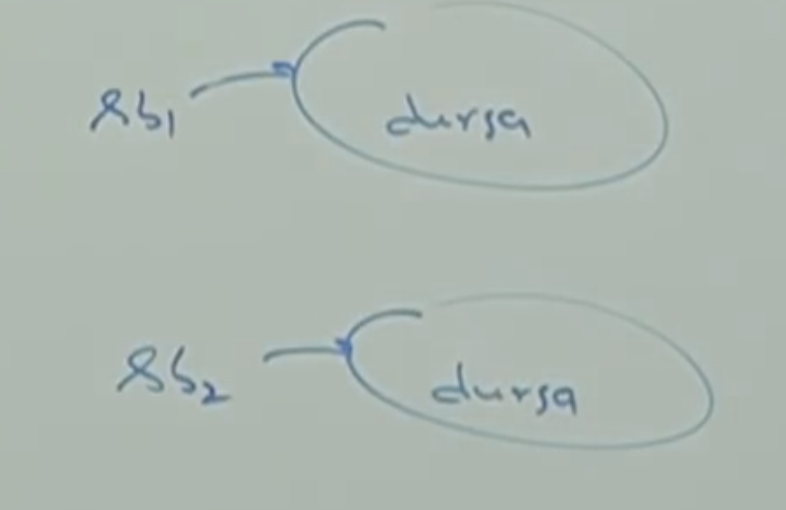 sb1 durga
sb2 durga